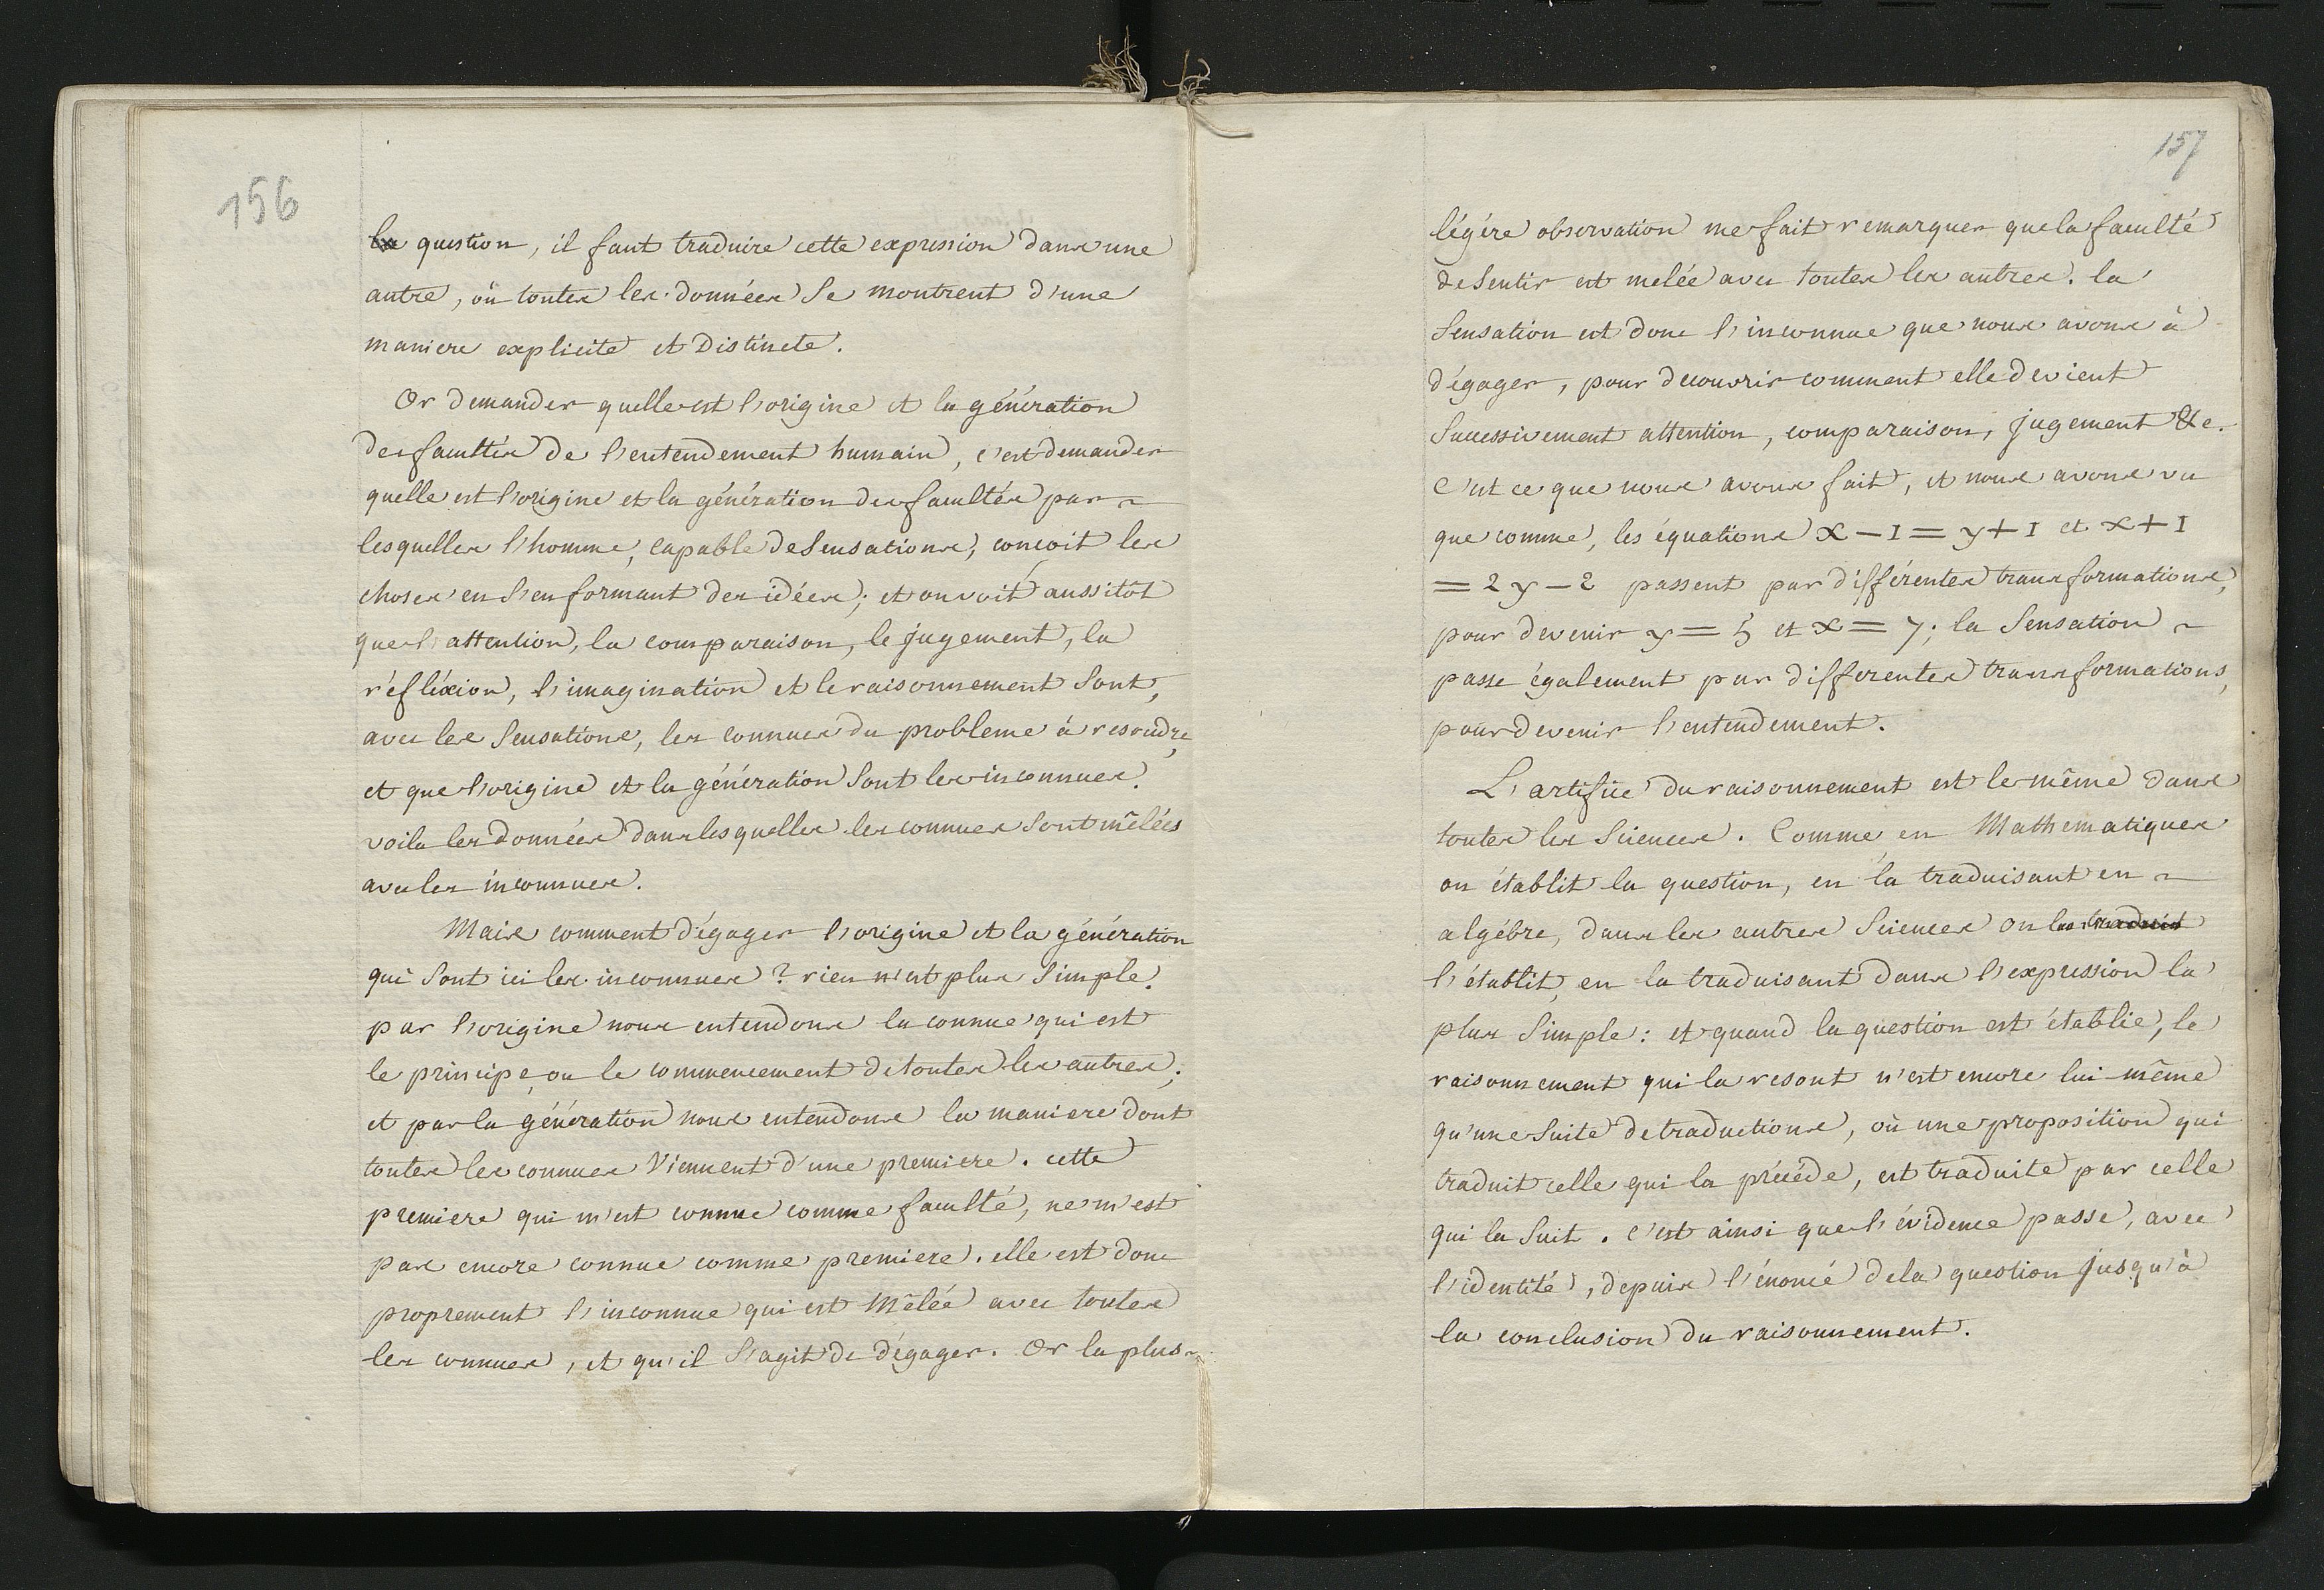 156
la question, il faut traduire cette expression dans une
autre, où toutes les données Se montrent d'une
maniere explicite et Distincte.
Or demander quelle est l'origine et la génération
des facultés de l'entendement humain, c'est demander
quelle est l'origine et la génération des facultés par
lesquelles l'homme, capable de Sensations, concoit les
choses en s'en formant des idées; et on voit aussitôt
que l'attention, la comparaison, le jugement, la
réfléxion, l'imagination et le raisonnement Sont,
avec les Sensations, les connues du probleme à resoudre,
et que l'origine et la génération Sont les inconnues.
voila les données dans lesquelles les connues Sont mêlées
avec les inconnues.
Mais comment dégager l'origine et la génération
qui Sont ici les inconnues? rien n'est plus Simple.
par l'origine nous entendons la connue qui est
le principe, ou le commencement de toutes les autres;
et par la génération nous entendons la maniere dont
toutes les connues Viennent d'une premiere. cette
premiere qui m'est connue comme faculté, ne m'est
pas encore connue comme premiere. elle est donc
proprement l'inconnue qui est Mêlée avec toutes
les connues, et qu'il S'agit de dégager. Or la plus
157
légére observation me fait remarquer que la faculté
de Sentir est melée avec toutes les autres. la
Sensation est donc l'inconnue que nous avons à
dégager, pour decouvrir comment elle devient
Successivement attention, comparaison, jugement &c.
C'est ce que nous avons fait, et nous avons vu
que comme, les équations x - 1 = y + 1 et x + 1
= 2 y - 2 passent par différentes transformations,
pour devenir y = 5 et x = 7; la Sensation
passe également par differentes transformations,
pour devenir l'entendement.
L'artifice du raisonnement est le même dans
toutes les Sciences. Comme en Mathematiques
on établit la question, en la traduisant en
algébre, dans les autres Sciences on la traduit
l'établit, en la traduisant dans l'expression la
plus Simple: et quand la question est établie, le
raisonnement qui la resout n'est encore lui-même
qu'une Suite de traductions, où une proposition qui
traduit celle qui la précéde, est traduite par celle
qui la Suit. c'est ainsi que l'évidence passe, avec
l'identité, depuis l'énoncé de la question jusqu'à
la conclusion du raisonnement.